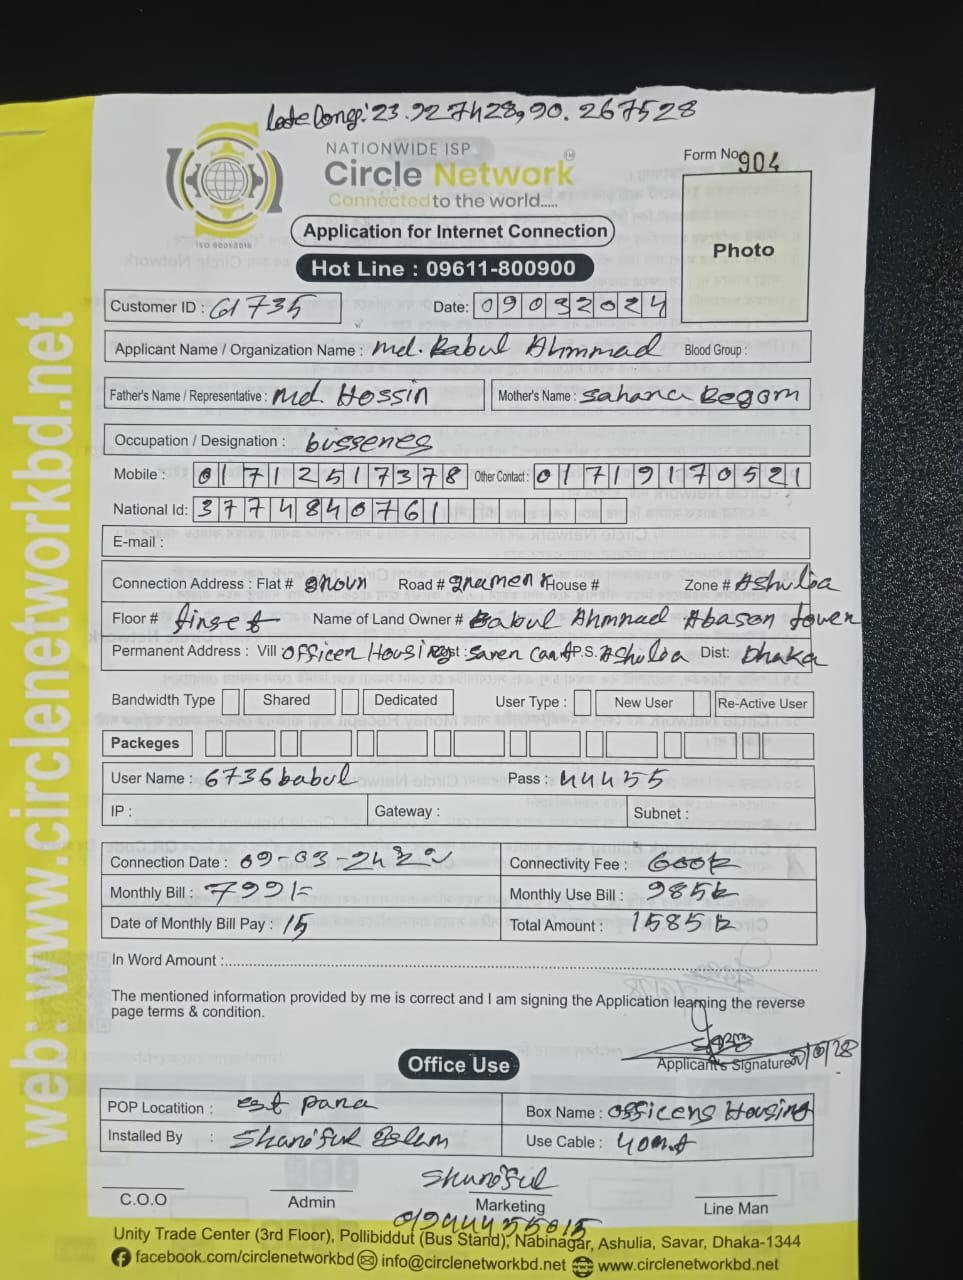 Late Long: 23.927428, 90.267528
NATIONWIDE ISP
Circle Network
Connected to the world.....
Form No. 904
Photo
Application for Internet Connection
Hot Line : 09611-800900
ISO 9001:2015
Customer ID : 61735 Date: 09032024
Applicant Name / Organization Name : Md. Babul Ahmmad Blood Group :
Father's Name / Representative : Md. Hossin Mother's Name : Sahana Begom
Occupation / Designation : bussenes
Mobile : 01712517378 Other Contact : 01719170521
National Id: 3774840761
E-mail :
Connection Address : Flat # Road # House # Zone # Ashulia
Floor # Name of Land Owner # Babul Ahmmad Abason tower
Permanent Address : Vill officer Housing P.S. Ashulia Dist: Dhaka
Bandwidth Type Shared Dedicated User Type : New User Re-Active User
Packeges
User Name : 6736babul Pass : 44455
IP : Gateway : Subnet :
Connection Date : 09-03-24 Connectivity Fee : 600tk
Monthly Bill : 799/= Monthly Use Bill : 985tk
Date of Monthly Bill Pay : 15 Total Amount : 1585tk
In Word Amount :
The mentioned information provided by me is correct and I am signing the Application learning the reverse
page terms & condition.
Applicant's Signature
Office Use
POP Locatition : Box Name : officers Housing
Installed By : Shariful Islam Use Cable :
Shariful
C.O.O Admin Marketing Line Man
Unity Trade Center (3rd Floor), Pollibiddut (Bus Stand), Nabinagar, Ashulia, Savar, Dhaka-1344
facebook.com/circlenetworkbd info@circlenetworkbd.net www.circlenetworkbd.net
web: www.circlenetworkbd.net